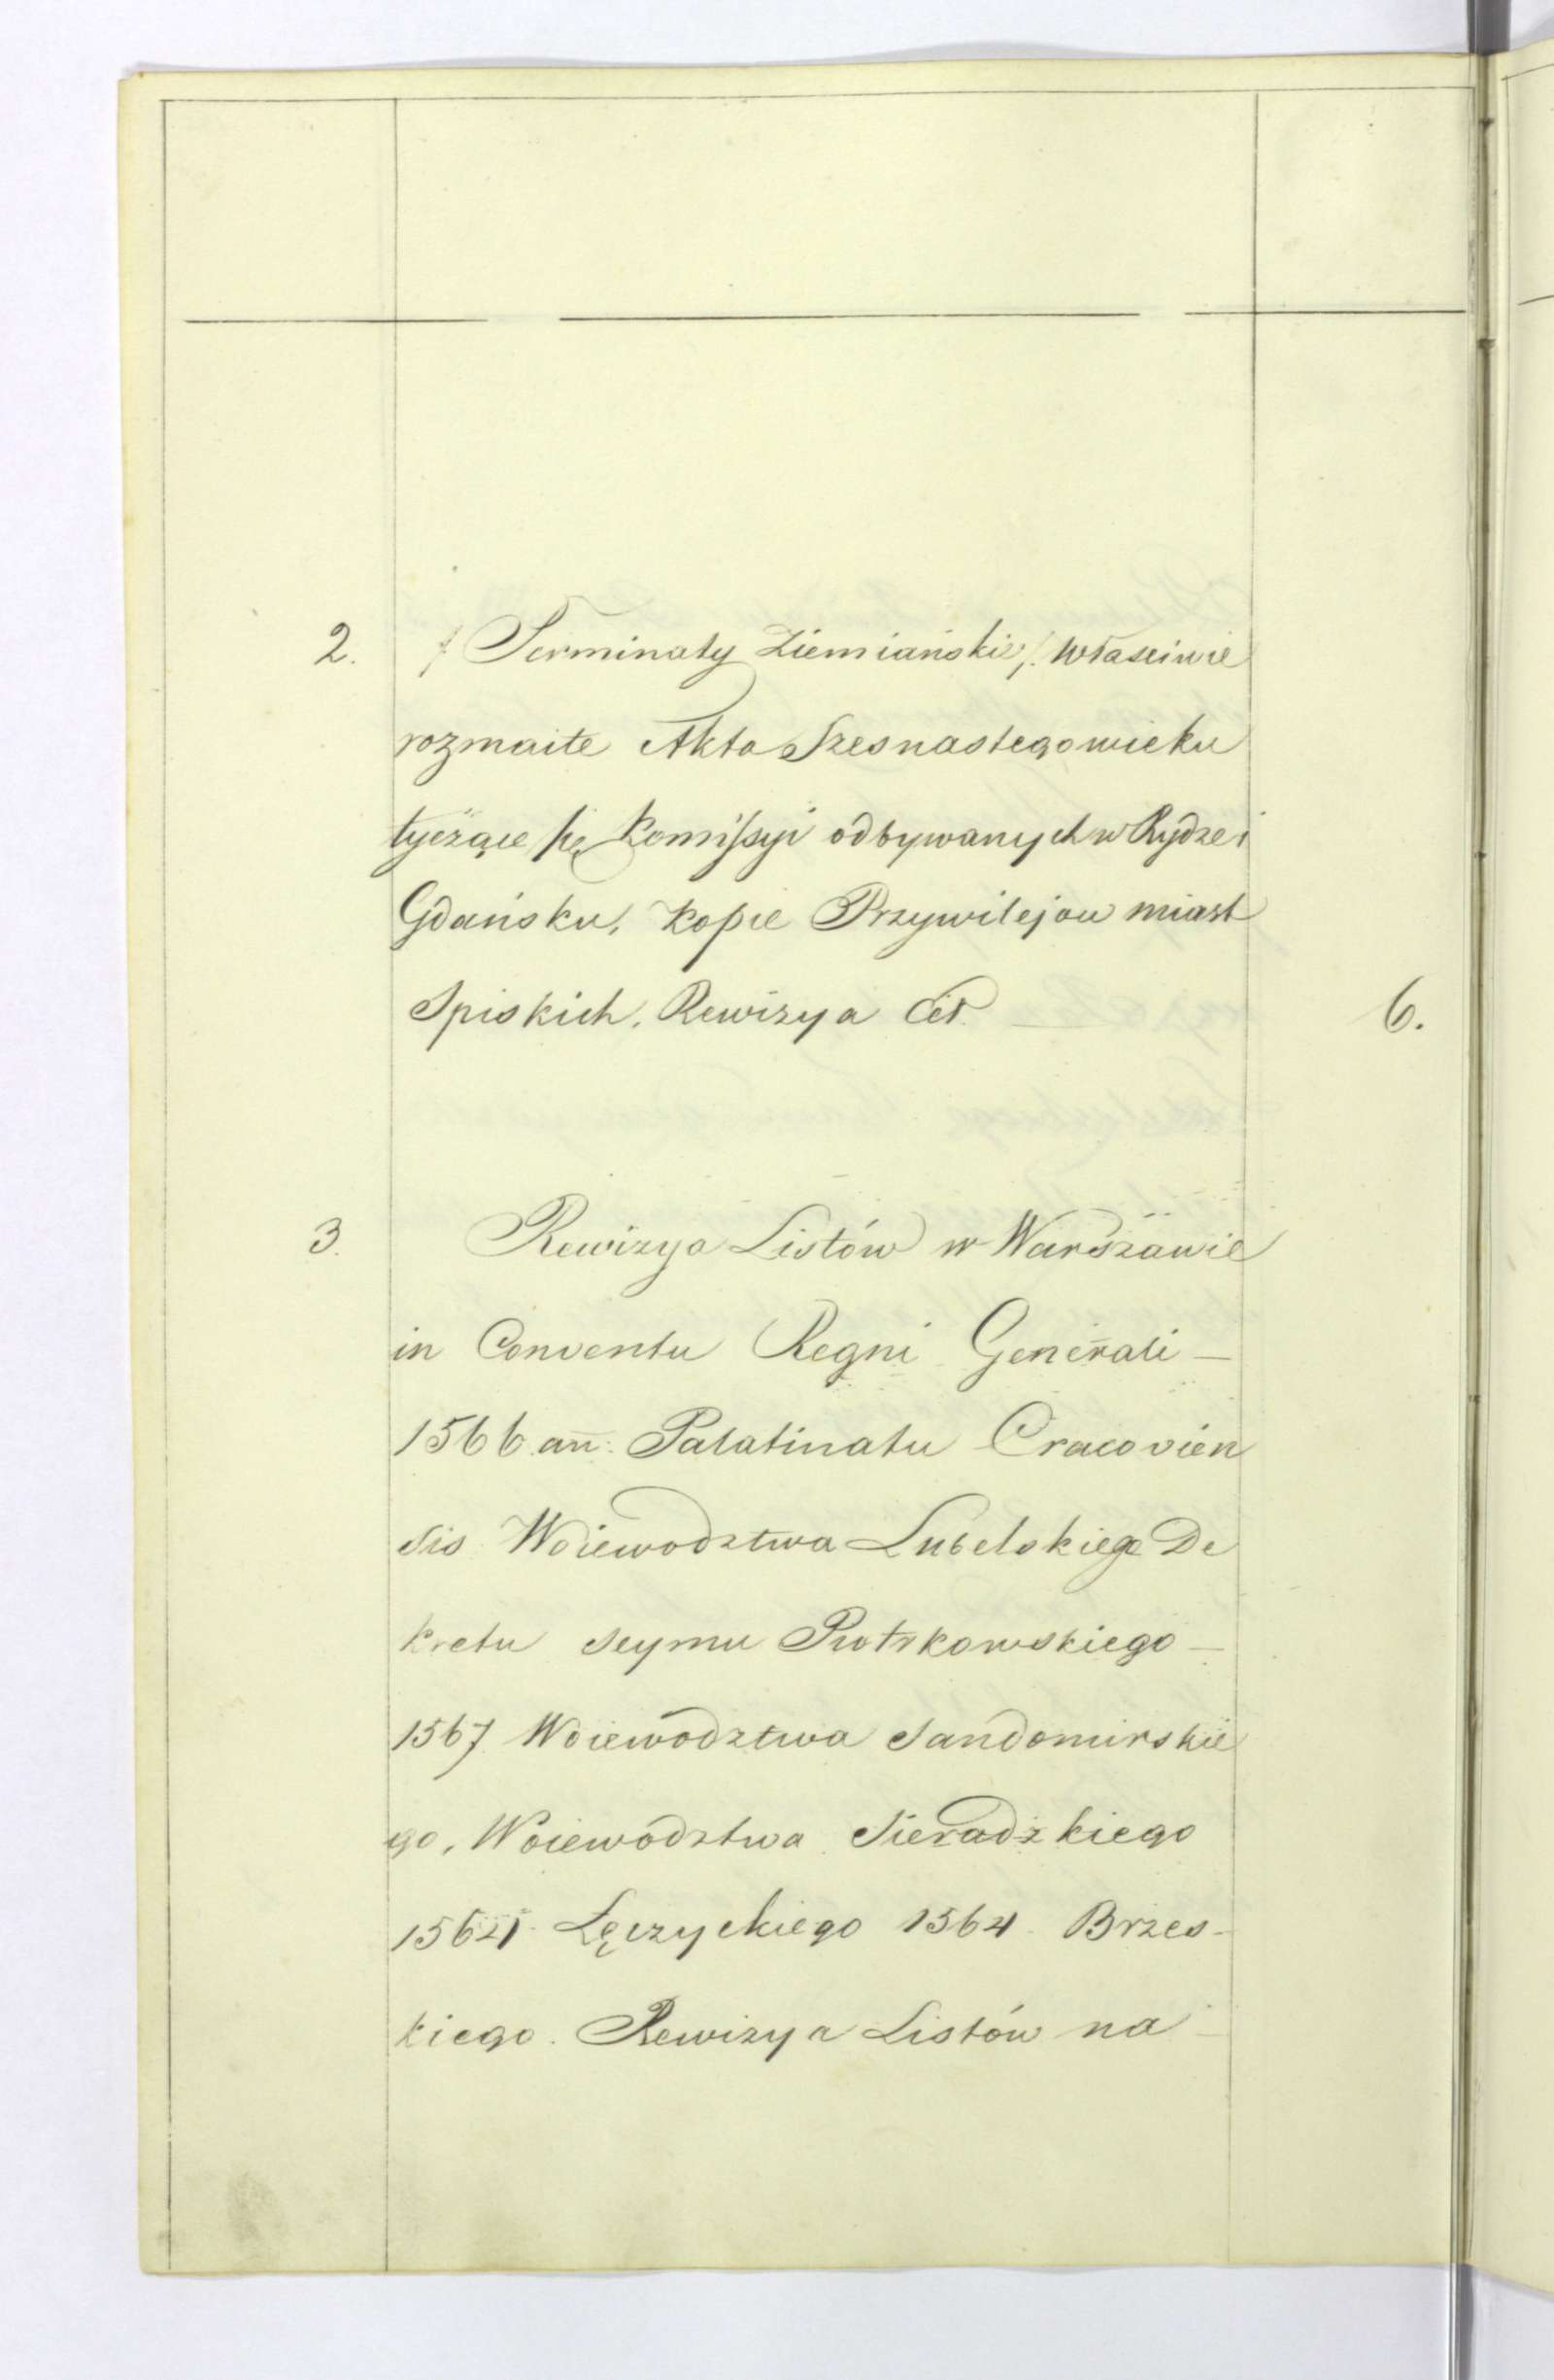 2. /: Terminaty Ziemiańskie /: właściwie
rozmaite Akta Szesnastego wieku
tyczące się Komissyi odbywanych w Rydze i
Gdańsku, Kopie Przywilejow miast
Spiskich, Rewizya Cet. — 6.
3. Rewizya Listów w Warszawie
in Conventu Regni Generali —
1566 an̄: Palatinatu Cracovien
sis Woiewodztwa Lubelskiego De
kretu Seymu Piotrkowskiego —
1567 Woiewództwa Sandomirskie
go, Woiewództwa Sieradzkiego
1564 Łęczyckiego 1564 Brzes-
kiego. Rewizya Listów na